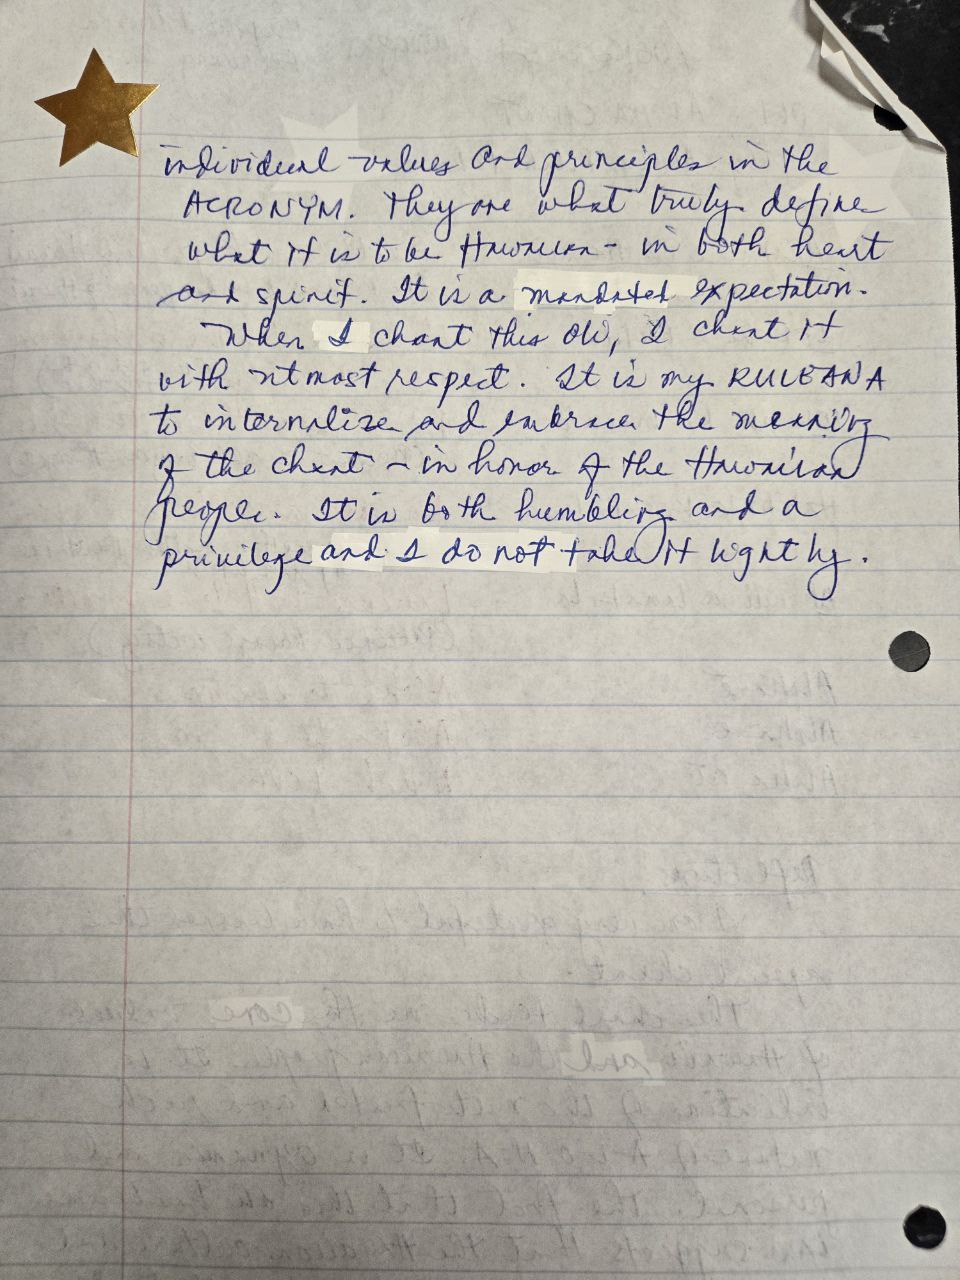 individual values and principles in the
ACRONYM. They are what truly define
what it is to be Hawaiian - in both heart
and spirit. It is a mandated expectation.
When I chant this oli, I chant it
with utmost respect. It is my KULEANA
to internalize and embrace the meaning
of the chant - in honor of the Hawaiian
people. It is both humbling and a
privilege and I do not take it lightly.